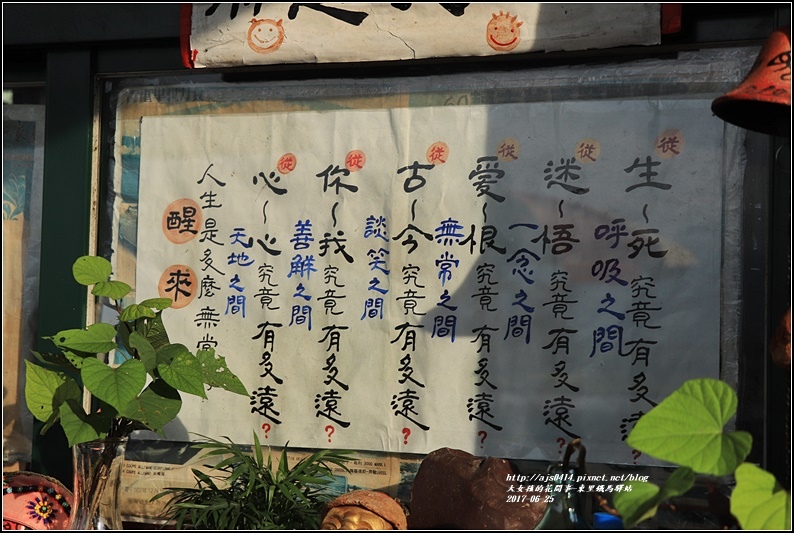 從生~死究竟有多遠?
呼吸之間
從迷~悟究竟有多遠?
一念之間
從愛~恨究竟有多遠?
無常之間
從古~今究竟有多遠?
談笑之間
從你~我究竟有多遠?
善解之間
從心~心究竟有多遠?
天地之間
人生是多麼無常
醒來
http://ajs0414.pixnet.net/blog
大女孩的花間事-東里鐵馬驛站
2017-06-25